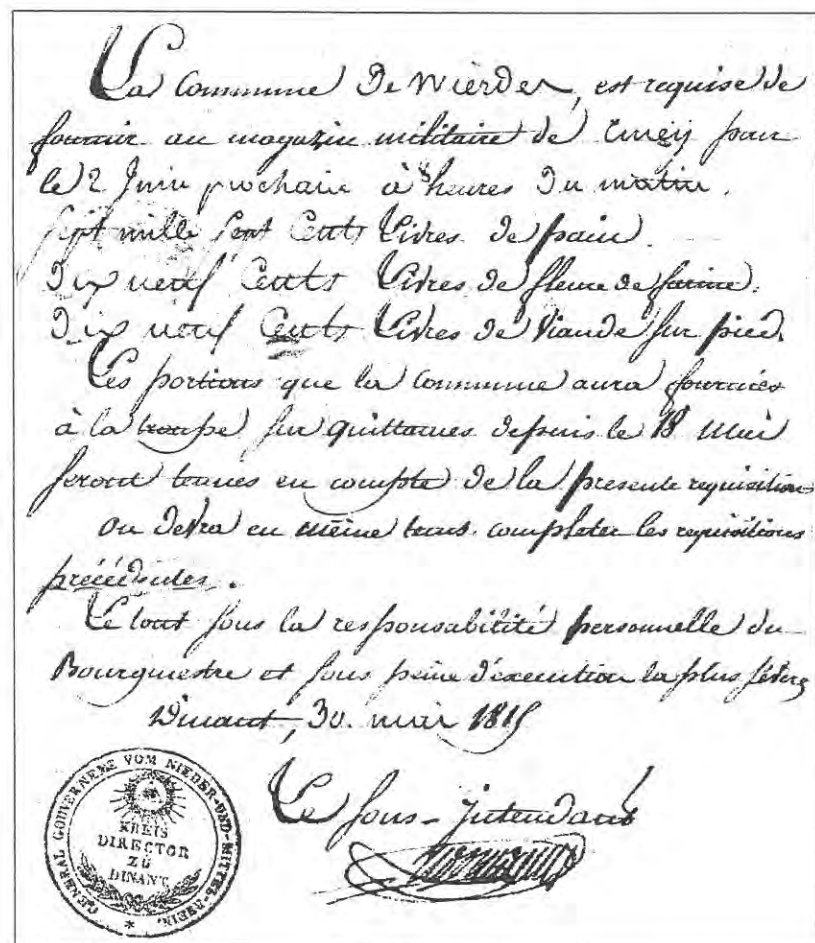 La Commune de Wierde, est requise de
fournir au magazin militaire de Cinéÿ pour
le 2 Juin prochain à 8 heures du matin.
Sept mille Sept Cents Livres de pain.
Dix neuf Cents Livres de fleur de farine.
Dix neuf Cents Livres de Viande sur pied.
Les portions que la Commune aura fournies
à la troupe sur quittances depuis le 18 Mai
seront tenues en compte de la presente requisition
On devra en même tems completer les requisitions
précédentes.
Le tout sous la responsabilité personnelle du
Bourgmestre et sous peine d'execution la plus sévere
Dinant, 30 mai 1815
Le Sous-Intendant
GENERAL GOUVERNEMENT VOM NIEDER-UND-MITTEL-RHEIN.
KREIS
DIRECTOR
ZU
DINANT